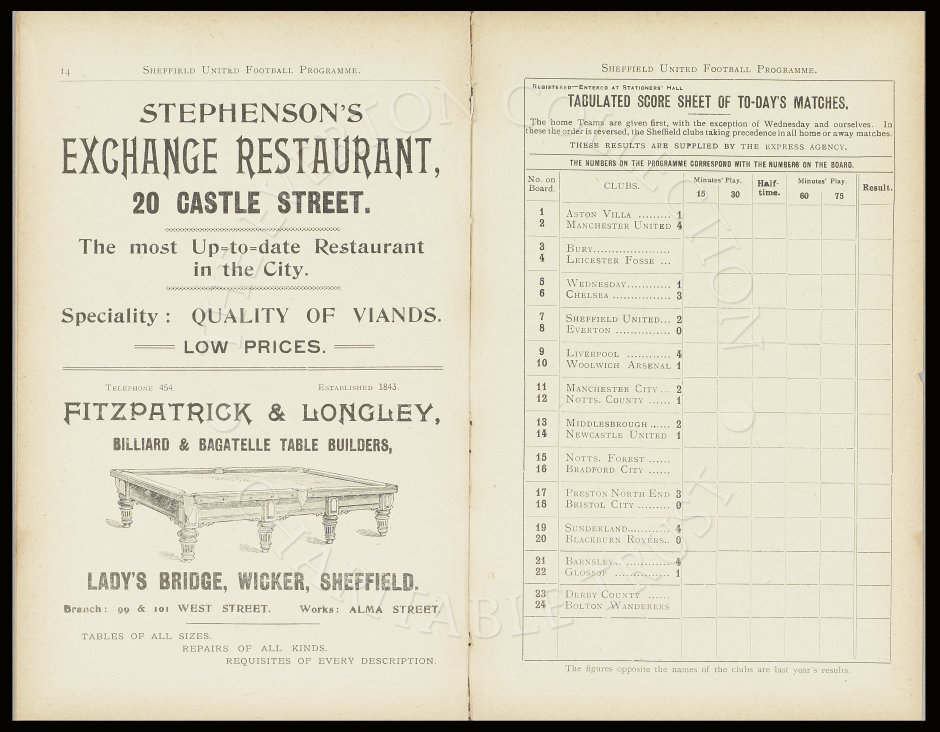 14 SHEFFIELD UNITED FOOTBALL PROGRAMME.
STEPHENSON'S
EXCHANGE RESTAURANT,
20 CASTLE STREET.
The most Up=to=date Restaurant
in the City.
Speciality: QUALITY OF VIANDS.
LOW PRICES.
TELEPHONE 454 ESTABLISHED 1843.
FITZPATRICK & LONGLEY,
BILLIARD & BAGATELLE TABLE BUILDERS,
LADY'S BRIDGE, WICKER, SHEFFIELD.
Branch: 99 & 101 WEST STREET. Works: ALMA STREET.
TABLES OF ALL SIZES.
REPAIRS OF ALL KINDS.
REQUISITES OF EVERY DESCRIPTION.
SHEFFIELD UNITED FOOTBALL PROGRAMME.
REGISTERED—ENTERED AT STATIONERS' HALL
TABULATED SCORE SHEET OF TO-DAY'S MATCHES.
The home Teams are given first, with the exception of Wednesday and ourselves. In
these the order is reversed, the Sheffield clubs taking precedence in all home or away matches.
THESE RESULTS ARE SUPPLIED BY THE EXPRESS AGENCY.
THE NUMBERS ON THE PROGRAMME CORRESPOND WITH THE NUMBERS ON THE BOARD.
No. on Board. CLUBS. Minutes' Play. 15 30 Half-time. Minutes' Play. 60 75 Result.
1 ASTON VILLA ......... 1
2 MANCHESTER UNITED 4
3 BURY.....................
4 LEICESTER FOSSE ...
5 WEDNESDAY............ 1
6 CHELSEA ................ 3
7 SHEFFIELD UNITED... 2
8 EVERTON ............... 0
9 LIVERPOOL ............ 4
10 WOOLWICH ARSENAL 1
11 MANCHESTER CITY... 2
12 NOTTS. COUNTY ...... 1
13 MIDDLESBROUGH ...... 2
14 NEWCASTLE UNITED 1
15 NOTTS. FOREST ......
16 BRADFORD CITY ......
17 PRESTON NORTH END 3
18 BRISTOL CITY ......... 0
19 SUNDERLAND............ 4
20 BLACKBURN ROVERS.. 0
21 BARNSLEY............... 4
22 GLOSSOP ............... 1
23 DERBY COUNTY ......
24 BOLTON WANDERERS
The figures opposite the names of the clubs are last year's results.